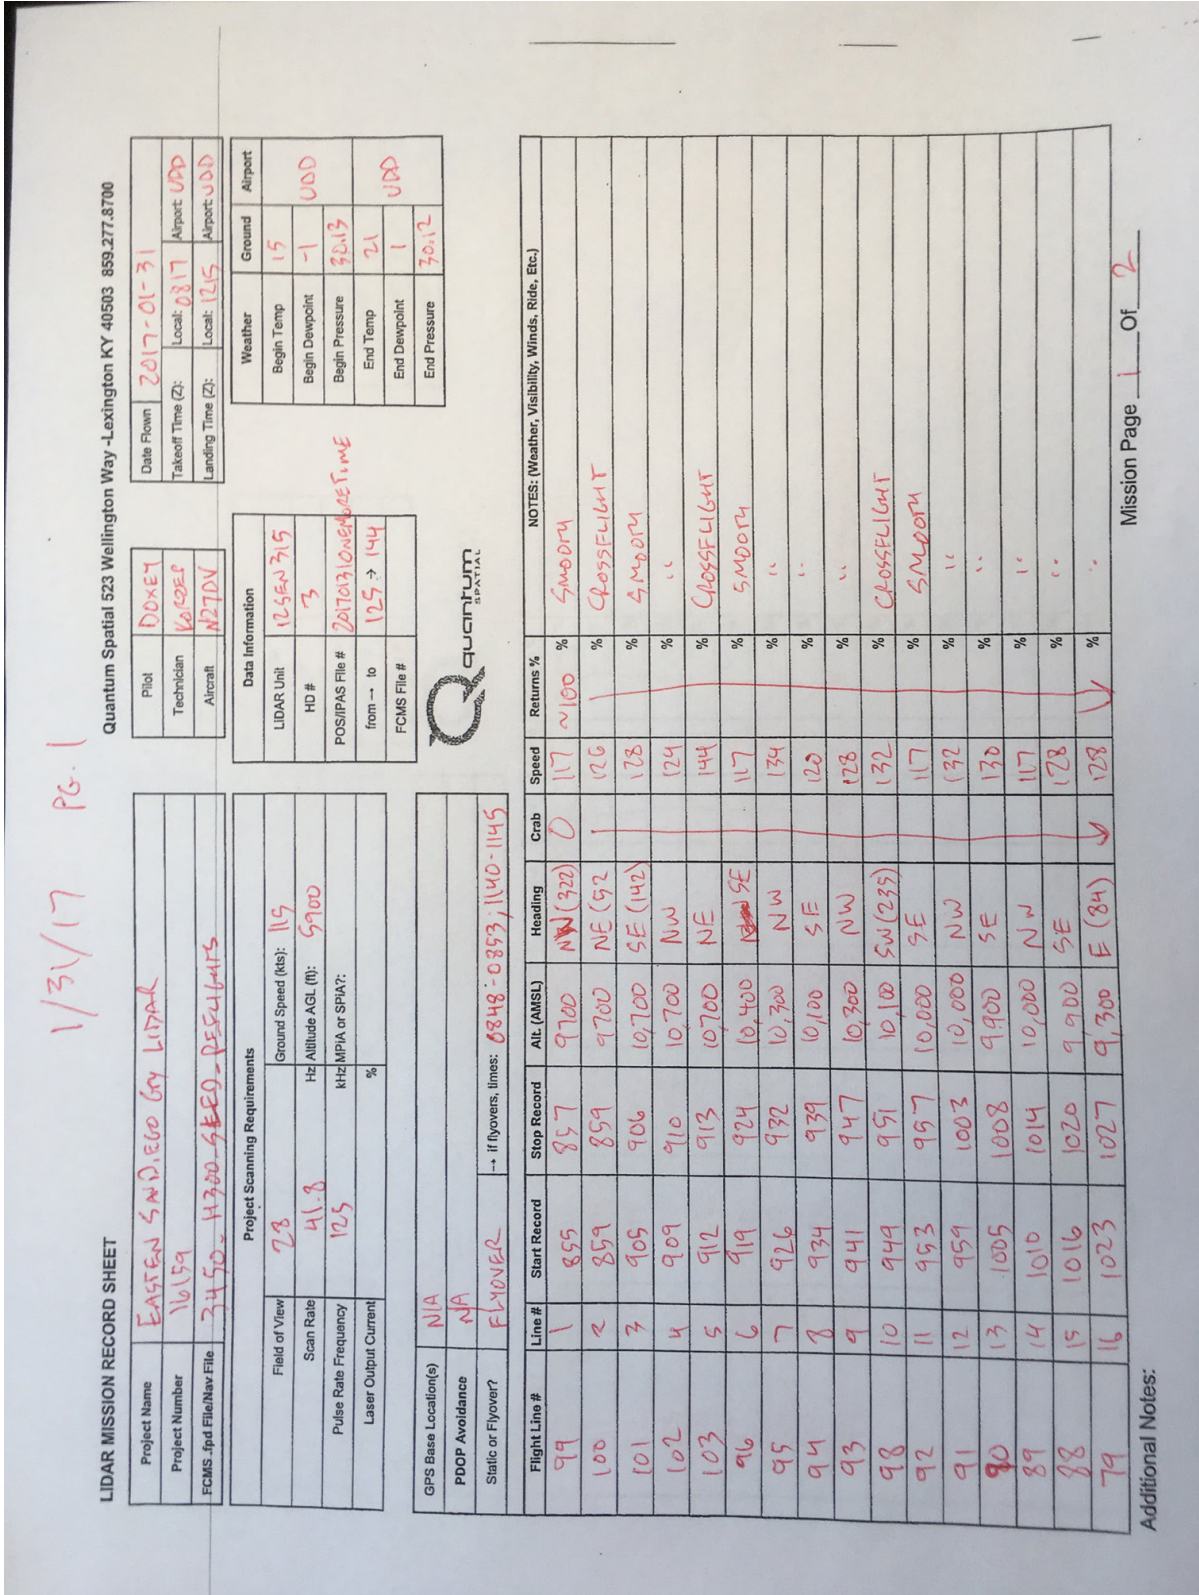 1/31/17 PG. 1
LIDAR MISSION RECORD SHEET
Quantum Spatial 523 Wellington Way -Lexington KY 40503 859.277.8700
Project Name EASTEN SAN DIEGO CTY LIDAR
Project Number 16159
FCMS .fpd File/Nav File 3450-H300-SEED-REFLIGHTS
Pilot DOXEY
Technician
Aircraft N27DV
Date Flown 2017-01-31
Takeoff Time (Z): Local: 0817 Airport: UDD
Landing Time (Z): Local: 1215 Airport: UDD
Project Scanning Requirements
Field of View 28 Ground Speed (kts): 115
Scan Rate 41.8 Hz Altitude AGL (ft): 5900
Pulse Rate Frequency 125 kHz MPIA or SPIA?:
Laser Output Current %
Data Information
LIDAR Unit 12SEN315
HD # 3
POS/IPAS File # 20170131ONEMORETIME
from → to 125 → 144
FCMS File #
Weather Ground Airport
Begin Temp 15
Begin Dewpoint -1 UDD
Begin Pressure 30.13
End Temp 21
End Dewpoint 1 UDD
End Pressure 30.12
GPS Base Location(s) N/A
PDOP Avoidance N/A
Static or Flyover? FLYOVER → if flyovers, times: 0848-0853; 1140-1145
quantum
SPATIAL
Flight Line # Line # Start Record Stop Record Alt. (AMSL) Heading Crab Speed Returns % NOTES: (Weather, Visibility, Winds, Ride, Etc.)
99 1 855 857 9700 NW (322) 0 117 ~100 % SMOOTH
100 2 859 859 9700 NE (52 126 % CROSSFLIGHT
101 3 905 906 10,700 SE (142) 128 % SMOOTH
102 4 909 910 10,700 NW 124 % "
103 5 912 913 10,700 NE 144 % CROSSFLIGHT
96 6 919 924 10,400 SE 117 % SMOOTH
95 7 926 932 10,300 NW 134 % "
94 8 934 939 10,100 SE 120 % "
93 9 941 947 10,300 NW 128 % "
98 10 949 951 10,100 SW (235) 132 % CROSSFLIGHT
92 11 953 957 10,000 SE 117 % SMOOTH
91 12 959 1003 10,000 NW 132 % "
90 13 1005 1008 9,900 SE 130 % "
89 14 1010 1014 10,000 NW 117 % "
88 15 1016 1020 9,900 SE 128 % "
79 16 1023 1027 9,300 E (84) 128 % "
Additional Notes:
Mission Page 1 Of 2